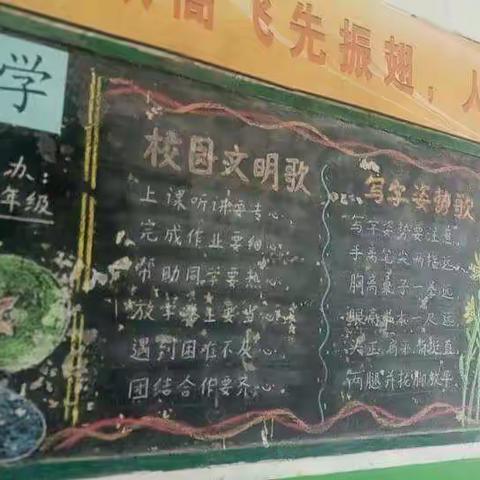 高飞先振翅，人
学
办：
年级
校园文明歌
上课听讲要专心，
完成作业要细心，
帮助同学要热心，
放学
遇到困难不灰心，
团结合作要齐心。
写字姿势歌
写字姿势要注意，
手离笔尖两指远，
胸离桌子一拳远，
眼离书本一尺远，
头正肩平背挺直，
两腿并拢脚放平。